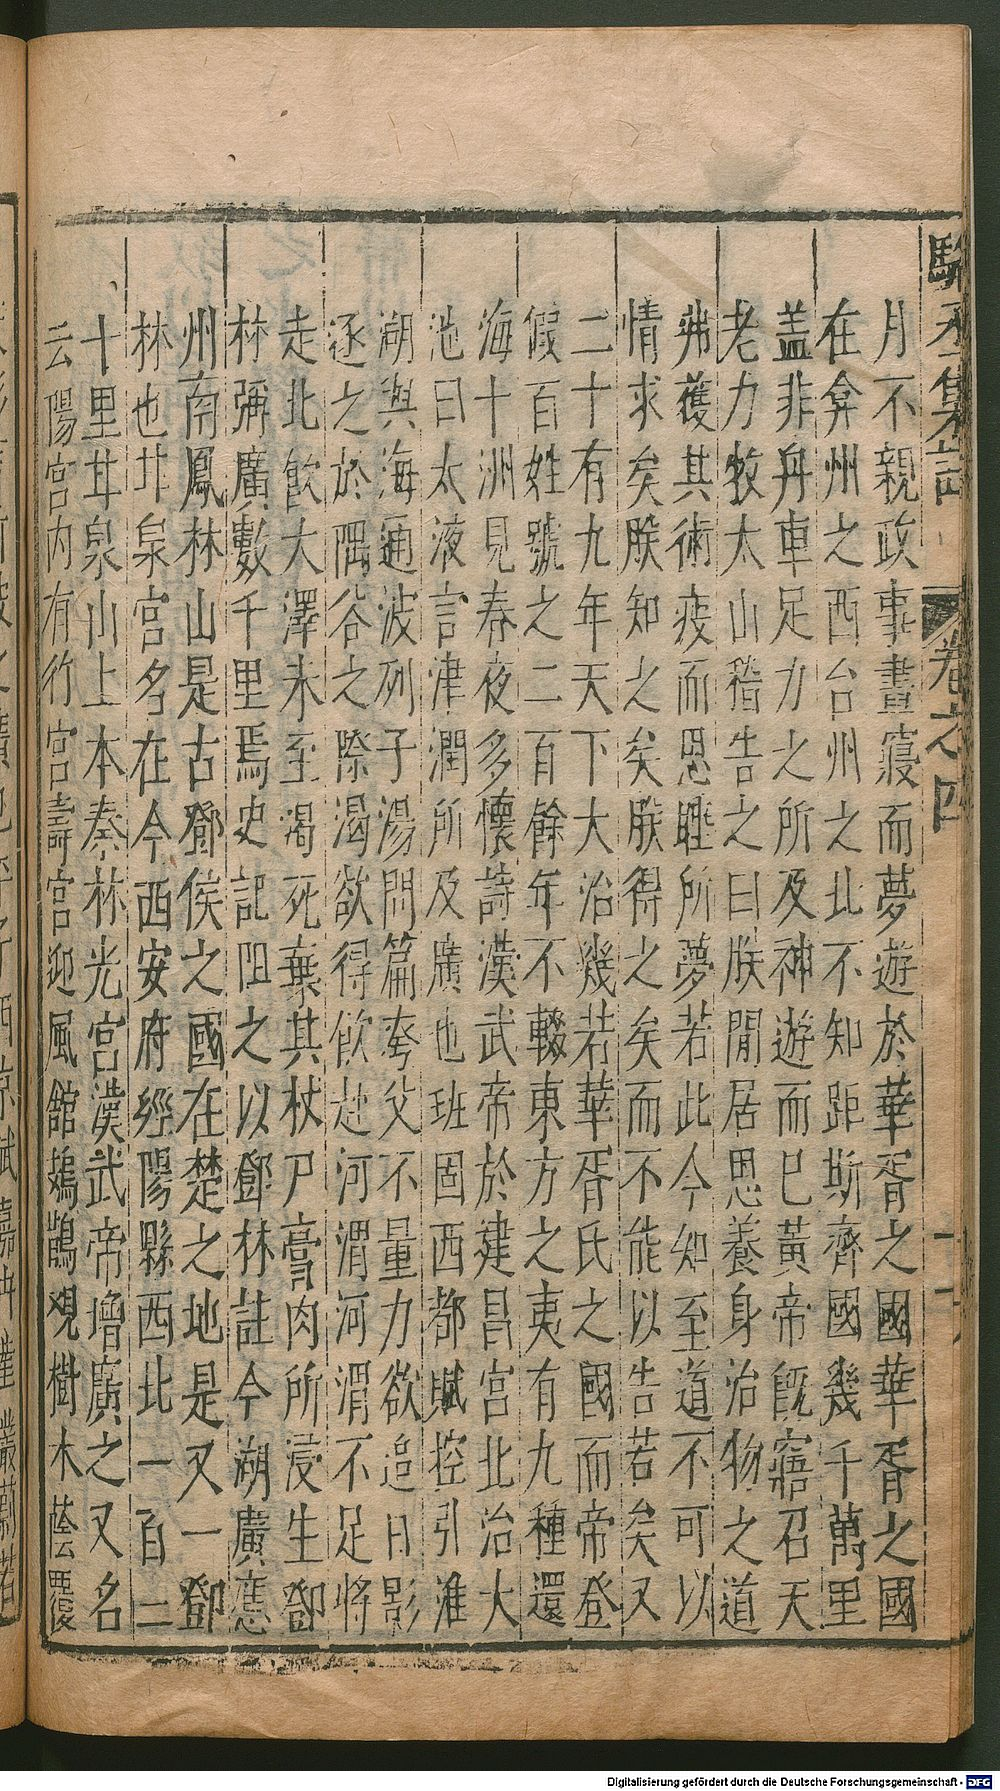 駱丞集註 卷之四
月不親政事晝寢而夢遊於華胥之國華胥之國
在弇州之西台州之北不知距斯齊國幾千萬里
盖非舟車足力之所及神遊而已黃帝旣寤召天
老力牧太山稽告之曰朕閒居思養身治物之道
弗獲其術疲而思睡所夢若此今知至道不可以
情求矣朕知之矣朕得之矣而不能以告若矣又
二十有九年天下大治幾若華胥氏之國而帝登
假百姓號之二百餘年不輟東方之夷有九種還
海十洲見春夜多懷詩漢武帝於建昌宮北治大
池曰太液言津潤所及廣也班固西都賦控引淮
湖與海通波列子湯問篇夸父不量力欲追日影
逐之於隅谷之際渴欲得飲赴河渭河渭不足將
走北飲大澤未至渴死棄其杖尸膏肉所浸生鄧
林彌廣數千里焉史記阻之以鄧林註今湖廣應
州南鳳林山是古鄧侯之國在楚之地是又一鄧
林也甘泉宮名在今西安府經陽縣西北一百二
十里甘泉山上本秦林光宮漢武帝增廣之又名
云陽宮內有竹宮壽宮迎風館鳷鵲观樹木蔭覆
Digitalisierung gefördert durch die Deutsche Forschungsgemeinschaft - DFG